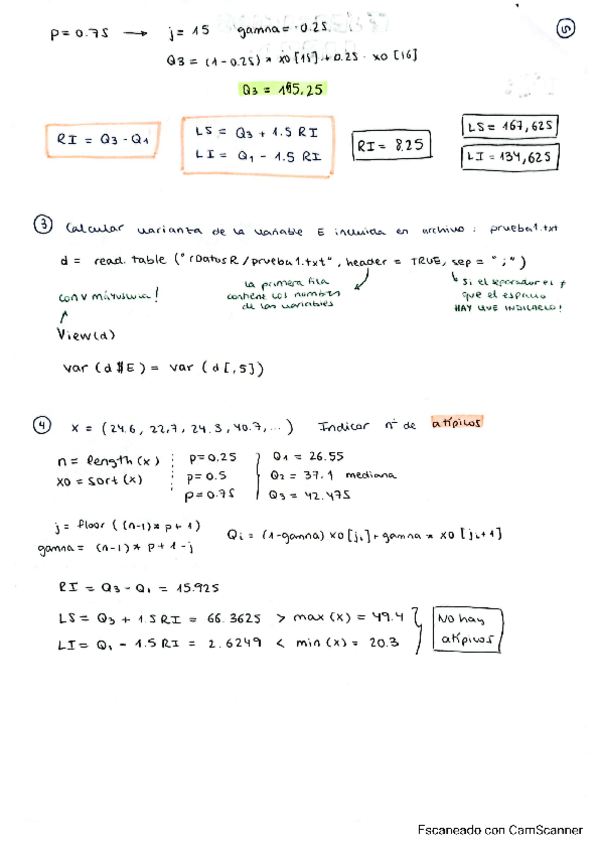 5
p = 0.75 → j = 15 gamna = 0.25
Q3 = (1-0.25) * xo[15] + 0.25 · xo[16]
Q3 = 165,25
RI = Q3 - Q1
LS = Q3 + 1.5 RI
LI = Q1 - 1.5 RI
RI = 8.25
LS = 167,625
LI = 134,625
3 Calcular varianza de la variable E incluida en archivo: prueba1.txt
d = read.table ("rDatosR/prueba1.txt", header = TRUE, sep = ";")
con V mayuscula!
la primera fila
contiene los nombres
de las variables
Si el separador es ≠
que el espacio
HAY QUE INDICARLO!
View(d)
var (d$E) = var (d[,5])
4 X = (24.6, 22,7, 24.3, 40.7,...) Indicar nº de atípicos
n = length(x)
xo = sort(x)
p = 0.25
p = 0.5
p = 0.75
Q1 = 26.55
Q2 = 37.1 mediana
Q3 = 42.475
j = floor ((n-1)* p + 1)
gamna = (n-1)* p + 1 - j
Qi = (1-gamna) XO[ji] + gamna * XO[ji+1]
RI = Q3 - Q1 = 15.925
LS = Q3 + 1.5 RI = 66.3625 > max(x) = 49.4
LI = Q1 - 1.5 RI = 2.6249 < min(x) = 20.3
No hay
atípicos
Escaneado con CamScanner